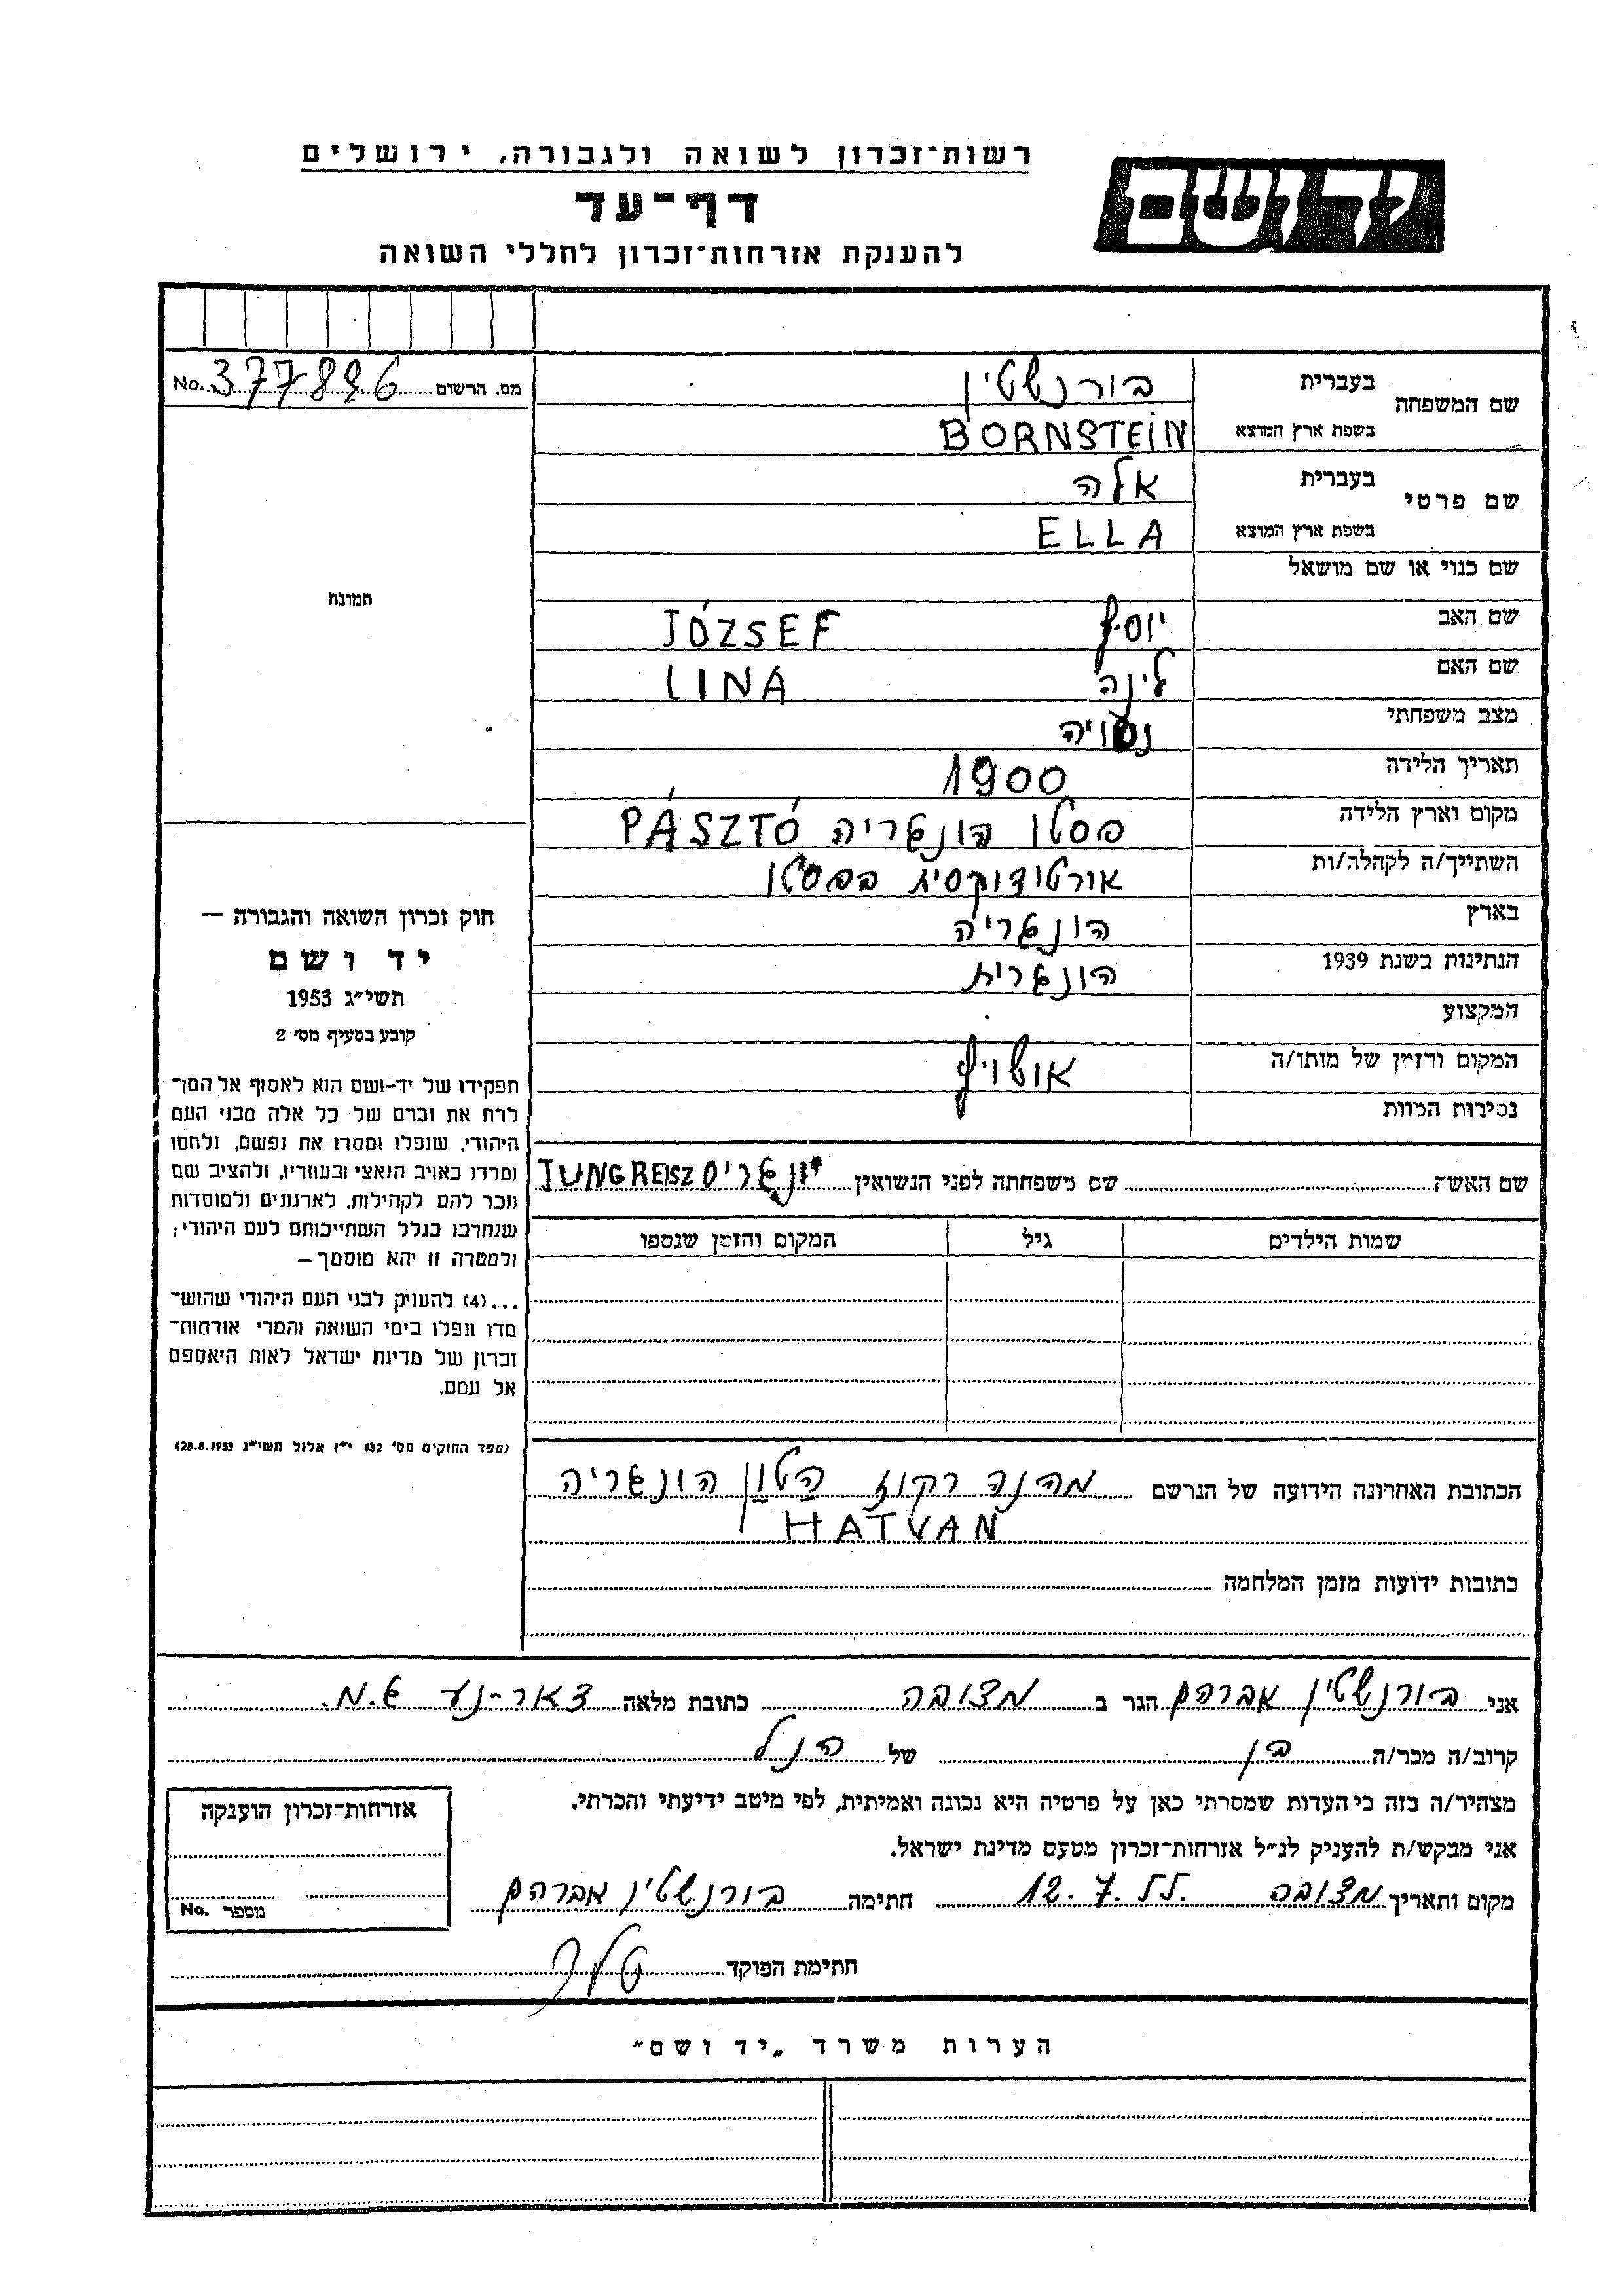 רשות־זכרון לשואה ולגבורה, ירושלים
יד ושם
דף־עד
להענקת אזרחות־זכרון לחללי השואה
מס. הרשום No. 377896
שם המשפחה בעברית בורנשטין
בשפת ארץ המוצא BORNSTEIN
שם פרטי בעברית אלה
בשפת ארץ המוצא ELLA
שם כנוי או שם מושאל
שם האב יוסף JÓZSEF
שם האם לינה LINA
מצב משפחתי נשויה
תאריך הלידה 1900
מקום וארץ הלידה פסטו הונגריה PÁSZTÓ
השתייך/ה לקהלה/ות אורטודוקסית בפסטו
בארץ הונגריה
הנתינות בשנת 1939 הונגרית
המקצוע
המקום והזמן של מותו/ה אושויץ
נסיבות המוות
שם האשה שם משפחתה לפני הנשואין יונגריס JUNGREISZ
שמות הילדים גיל המקום והזמן שנספו
הכתובת האחרונה הידועה של הנרשם הטון הונגריה
HATVAN
כתובות ידועות מזמן המלחמה
תמונה
חוק זכרון השואה והגבורה —
יד ושם
תשי״ג 1953
קובע בסעיף מס׳ 2
תפקידו של יד-ושם הוא לאסוף אל המו־
לדת את זכרם של כל אלה מבני העם
היהודי, שנפלו ומסרו את נפשם, נלחמו
ומרדו באויב הנאצי ובעוזריו, ולהציב שם
וזכר להם לקהילות, לארגונים ולמוסדות
שנחרבו בגלל השתייכותם לעם היהודי;
ולמטרה זו יהא מוסמך —
...(4) להעניק לבני העם היהודי שהוש־
מדו ונפלו בימי השואה והמרי אזרחות־
זכרון של מדינת ישראל לאות היאספם
אל עמם.
(ספר החוקים מס׳ 132 י״ז אלול תשי״ג 28.8.1953)
אני בורנשטין אברהם הגר ב מצובה כתובת מלאה דאר-נע ג.מ.
קרוב/ה מכר/ה בן של הנל
מצהיר/ה בזה כי העדות שמסרתי כאן על פרטיה היא נכונה ואמיתית, לפי מיטב ידיעתי והכרתי.
אני מבקש/ת להעניק לנ״ל אזרחות־זכרון מטעם מדינת ישראל.
מקום ותאריך מצובה 12.7.77. חתימה בורנשטין אברהם
חתימת הפוקד
אזרחות־זכרון הוענקה
מספר No.
הערות משרד „יד ושם״